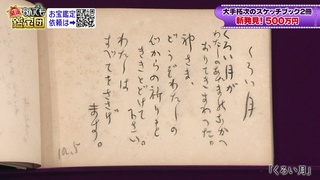 開運なんでも鑑定団
お宝鑑定
依頼は➡
大手拓次のスケッチブック2冊
新発見！500万円
くろい月
くろい月が
わたしのあたまのなかへ
おりてきまよった。
神さま、
どうぞわたしの
心からの祈りを
ききとどけて下さい。
わたしは
すべてをささげ
ます。
10.5
「くろい月」